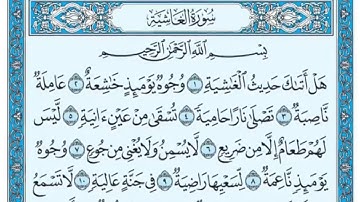 سُورَةُ الغَاشِيَةِ
بِسْمِ ٱللَّهِ ٱلرَّحْمَٰنِ ٱلرَّحِيمِ
هَلْ أَتَىٰكَ حَدِيثُ ٱلْغَٰشِيَةِ ١ وُجُوهٌ يَوْمَئِذٍ خَٰشِعَةٌ ٢ عَامِلَةٌ
نَّاصِبَةٌ ٣ تَصْلَىٰ نَارًا حَامِيَةً ٤ تُسْقَىٰ مِنْ عَيْنٍ ءَانِيَةٍ ٥ لَّيْسَ
لَهُمْ طَعَامٌ إِلَّا مِن ضَرِيعٍ ٦ لَّا يُسْمِنُ وَلَا يُغْنِى مِن جُوعٍ ٧ وُجُوهٌ
يَوْمَئِذٍ نَّاعِمَةٌ ٨ لِّسَعْيِهَا رَاضِيَةٌ ٩ فِى جَنَّةٍ عَالِيَةٍ ١٠ لَّا تَسْمَعُ